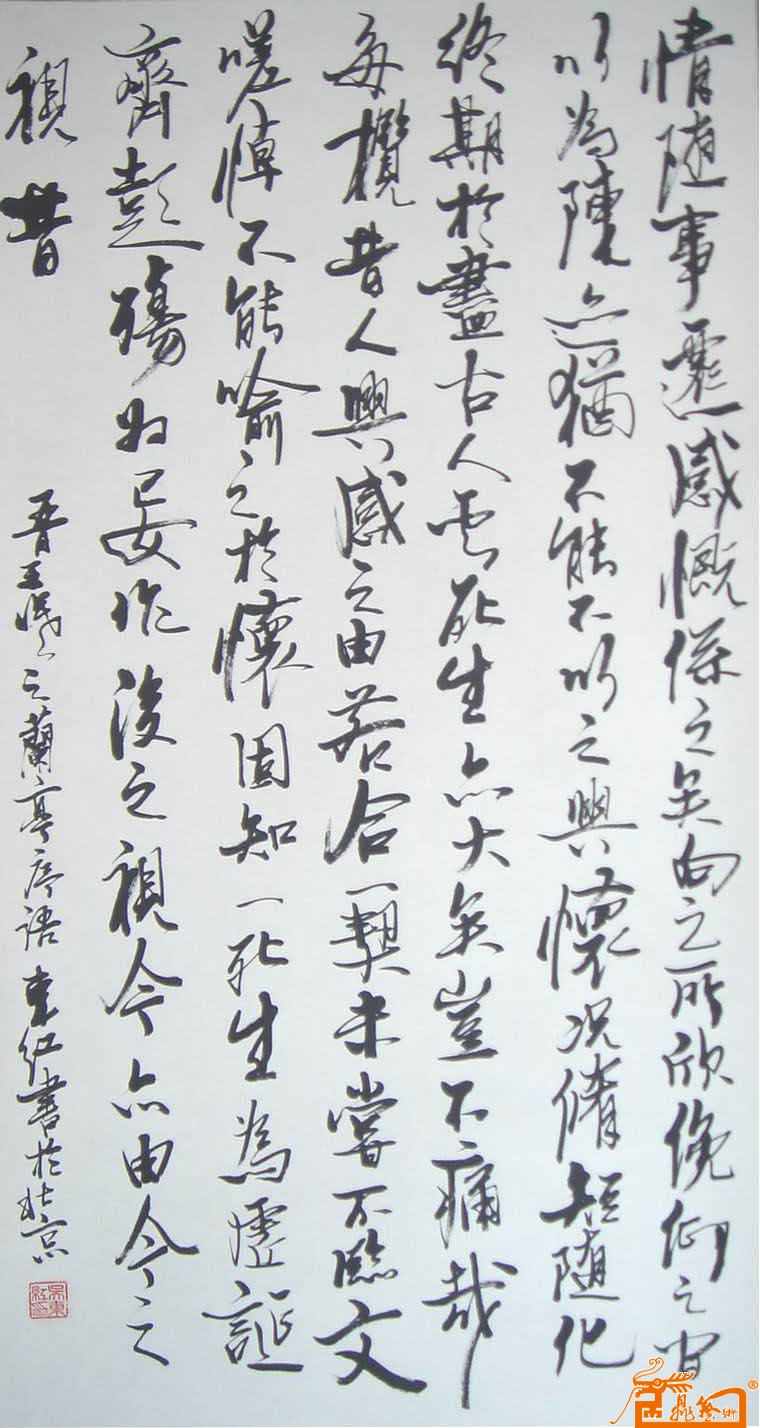 情随事遷感慨係之矣向之所欣俛仰之間
以為陳迹猶不能不以之興懷况脩短随化
終期於盡古人云死生亦大矣豈不痛哉
每攬昔人興感之由若合一契未嘗不臨文
嗟悼不能喻之於懷固知一死生為虛誕
齊彭殤為妄作後之視今亦由今之
視昔
晋王羲之蘭亭序語 東红書於北京